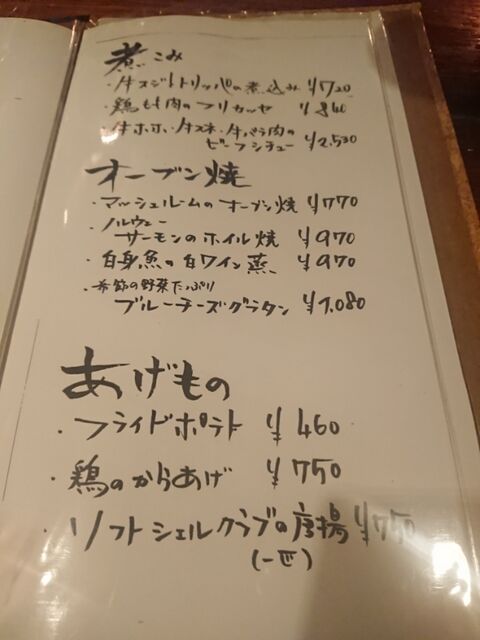 煮こみ
・牛スジとトリッパの煮込み ¥720
・鶏もも肉のフリカッセ ¥860
・牛ホホ、牛スネ、牛バラ肉の
ビーフシチュー ¥2,530
オーブン焼
・マッシュルームのオーブン焼 ¥770
・ノルウェー
サーモンのホイル焼 ¥970
・白身魚の白ワイン蒸 ¥970
・季節の野菜たっぷり
ブルーチーズグラタン ¥1,080
あげもの
・フライドポテト ¥460
・鶏のからあげ ¥750
・ソフトシェルクラブの唐揚 ¥750
(一匹)